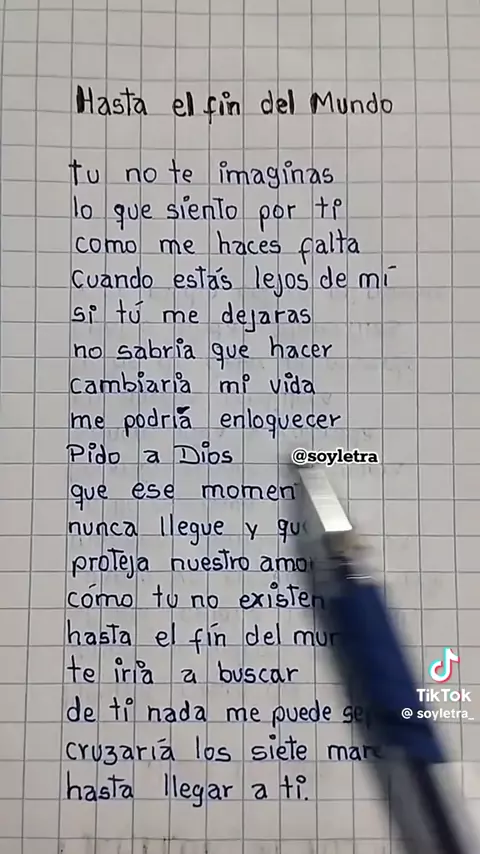 Hasta el fin del Mundo
tu no te imaginas
lo que siento por ti
como me haces falta
Cuando estás lejos de mí
si tú me dejaras
no sabria que hacer
cambiaria mi vida
me podría enloquecer
Pido a Dios
@soyletra
que ese momen
nunca llegue y qu
proteja nuestro amo
cómo tu no existen
hasta el fín del mun
te iria a buscar
de ti nada me puede se
cruzaría los siete mare
hasta llegar a ti.
TikTok
@soyletra_